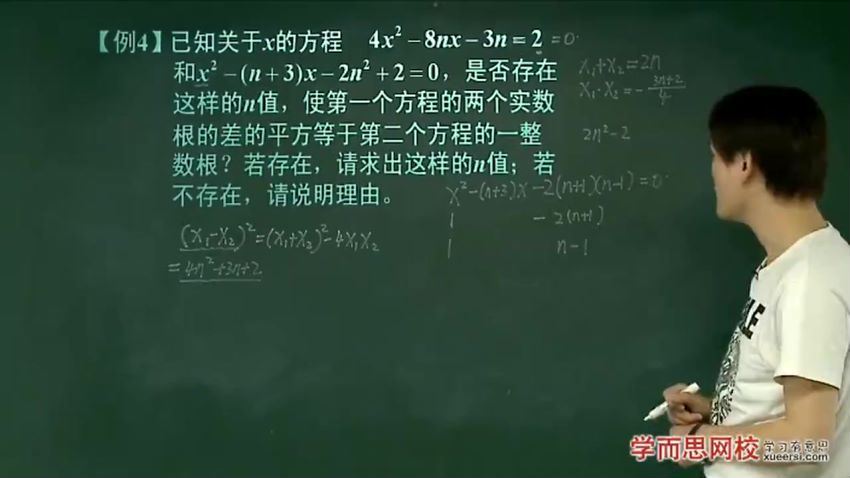 【例4】已知关于x的方程 4x²-8nx-3n=2 =0
和x²-(n+3)x-2n²+2=0，是否存在
这样的n值，使第一个方程的两个实数
根的差的平方等于第二个方程的一整
数根？若存在，请求出这样的n值；若
不存在，请说明理由。
x₁+x₂=2n
x₁·x₂=-\frac{3n+2}{4}
2n²-2
x²-(n+3)x-2(n+1)(n-1)=0
1 -2(n+1)
1 n-1
(x₁-x₂)²=(x₁+x₂)²-4x₁x₂
=4n²+3n+2
学而思网校 学习有意思
xueersi.com